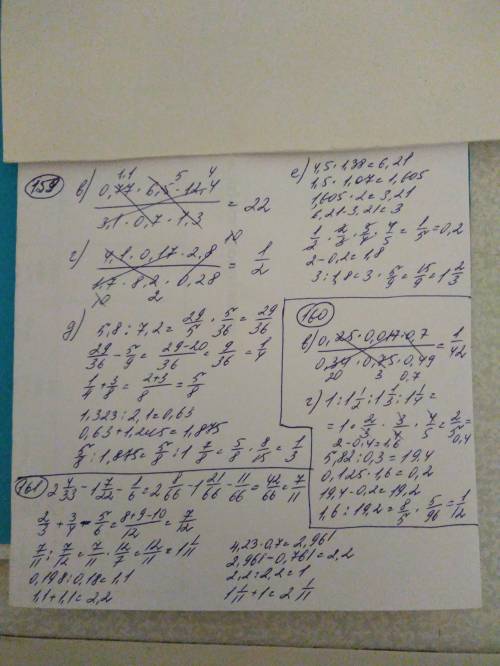 159
в) 0,77 · 6,5 · 12,4 / 3,1 · 0,7 · 1,3 = 22
1,1 5 4
г) 4,1 · 0,17 · 2,8 / 1,7 · 8,2 · 0,28 = 1/2
10 10 2
д) 5,8 : 7,2 = 29/5 · 5/36 = 29/36
29/36 - 5/9 = 29-20/36 = 9/36 = 1/4
1/4 + 3/8 = 2+3/8 = 5/8
1,323 : 2,1 = 0,63
0,63 + 1,245 = 1,875
5/8 : 1,875 = 5/8 : 1 7/8 = 5/8 · 8/15 = 1/3
е) 4,5 · 1,38 = 6,21
1,5 · 1,07 = 1,605
1,605 · 2 = 3,21
6,21 - 3,21 = 3
1/2 · 2/3 · 3/4 · 4/5 = 1/5 = 0,2
2 - 0,2 = 1,8
3 : 1,8 = 3 · 5/9 = 15/9 = 1 2/3
160
в) 0,25 · 0,017 · 0,7 / 0,34 · 0,75 · 0,49 = 1/42
20 3 0,7
г) 1 : 1 1/2 : 1 1/3 : 1 1/4 =
= 1 · 2/3 · 3/4 · 4/5 = 2/5 = 0,4
2 - 0,4 = 1,6
5,82 : 0,3 = 19,4
0,125 · 1,6 = 0,2
19,4 - 0,2 = 19,2
1,6 : 19,2 = 8/5 · 5/96 = 1/12
161
2 4/33 - 1 7/22 - 1/6 = 2 8/66 - 1 21/66 - 11/66 = 42/66 = 7/11
2/3 + 3/4 - 5/6 = 8+9-10/12 = 7/12
7/11 : 7/12 = 7/11 · 12/7 = 12/11 = 1 1/11
0,198 : 0,18 = 1,1
1,1 + 1,1 = 2,2
4,23 · 0,7 = 2,961
2,961 - 0,761 = 2,2
2,2 : 2,2 = 1
1 1/11 + 1 = 2 1/11